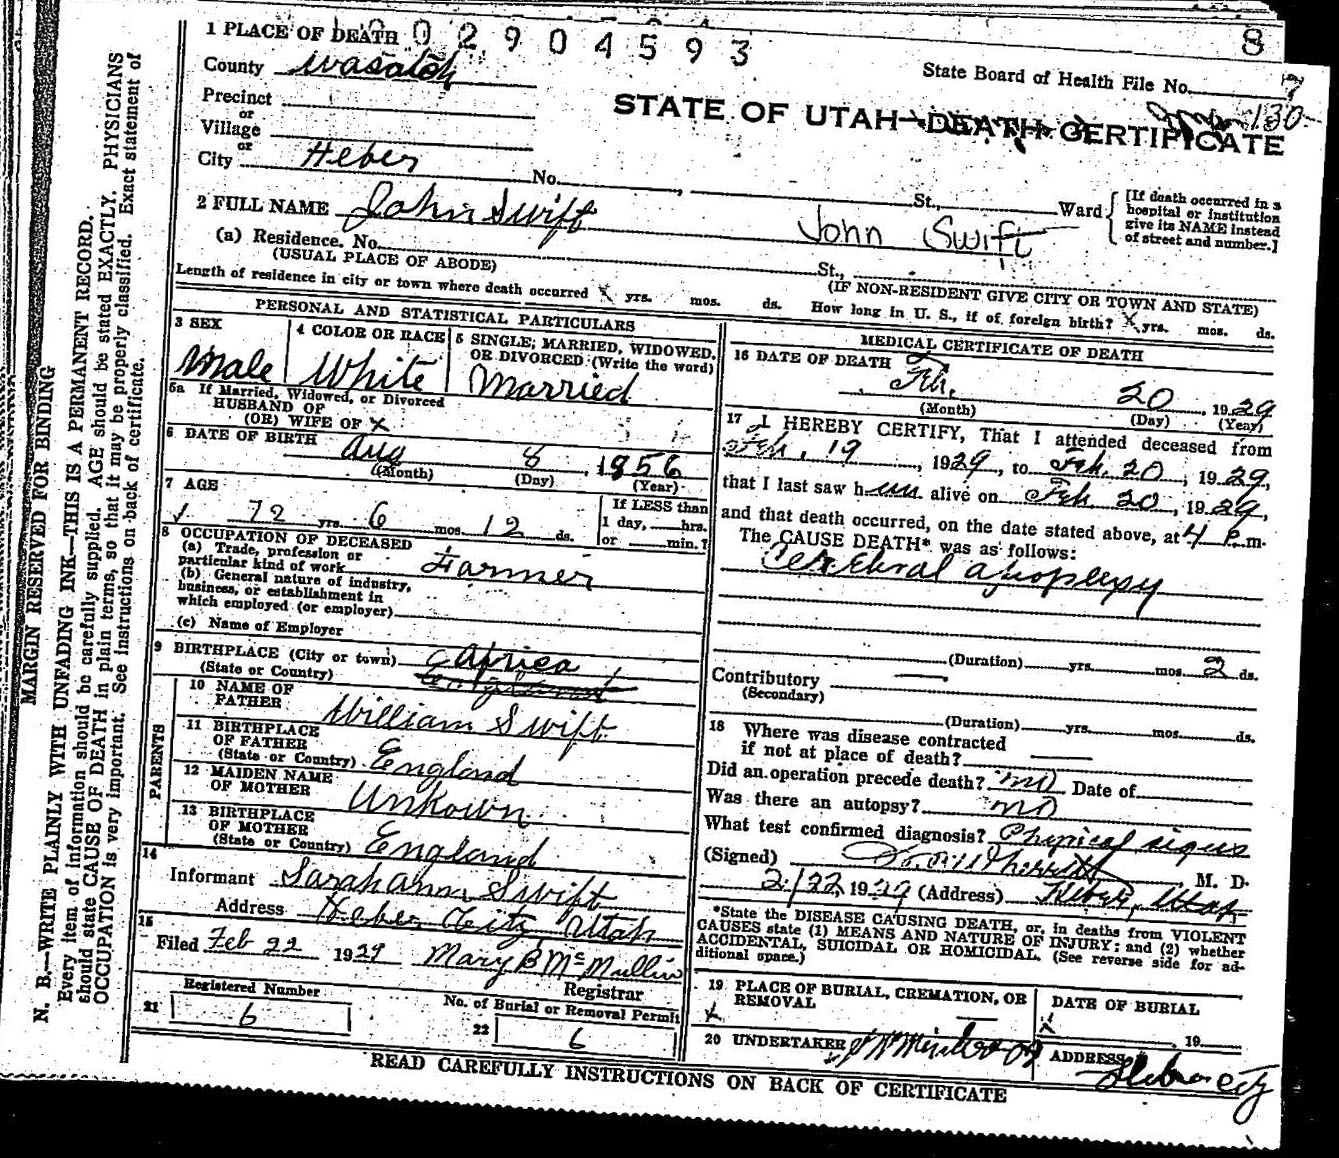 1 PLACE OF DEATH 0 2 9 0 4 5 9 3
8
County Wasatch
State Board of Health File No.
130
Precinct
or
Village
or
City Heber No. St., Ward
STATE OF UTAH—DEATH CERTIFICATE
[If death occurred in a
hospital or institution
give its NAME instead
of street and number.]
2 FULL NAME John Swift John Swift
(a) Residence. No. St.,
(USUAL PLACE OF ABODE) (IF NON-RESIDENT GIVE CITY OR TOWN AND STATE)
Length of residence in city or town where death occurred x yrs. mos. ds. How long in U. S., if of foreign birth? x yrs. mos. ds.
PERSONAL AND STATISTICAL PARTICULARS
3 SEX
Male
4 COLOR OR RACE
White
5 SINGLE, MARRIED, WIDOWED,
OR DIVORCED (Write the word)
Married
5a If Married, Widowed, or Divorced
HUSBAND OF
(OR) WIFE OF x
6 DATE OF BIRTH
Aug 8, 1856
(Month) (Day) (Year)
7 AGE
72 yrs. 6 mos. 12 ds.
If LESS than
1 day, hrs.
or min.?
8 OCCUPATION OF DECEASED
(a) Trade, profession or
particular kind of work Farmer
(b) General nature of industry,
business, or establishment in
which employed (or employer)
(c) Name of Employer
9 BIRTHPLACE (City or town) Africa
(State or Country)
PARENTS
10 NAME OF
FATHER William Swift
11 BIRTHPLACE
OF FATHER
(State or Country) England
12 MAIDEN NAME
OF MOTHER Unkown
13 BIRTHPLACE
OF MOTHER
(State or Country) England
14
Informant Sarah Ann Swift
Address Heber City, Utah
15
Filed Feb 22 1929 Mary B McMullin
Registrar
21
Registered Number
6
No. of Burial or Removal Permit
22 6
MEDICAL CERTIFICATE OF DEATH
16 DATE OF DEATH
Feb. 20, 1929
(Month) (Day) (Year)
17 I HEREBY CERTIFY, That I attended deceased from
Feb. 19, 1929, to Feb. 20, 1929,
that I last saw him alive on Feb 20, 1929,
and that death occurred, on the date stated above, at 4 P.m.
The CAUSE DEATH* was as follows:
Cerebral apoplexy
(Duration) yrs. mos. 2 ds.
Contributory
(Secondary)
(Duration) yrs. mos. ds.
18 Where was disease contracted
if not at place of death?
Did an operation precede death? no Date of
Was there an autopsy? no
What test confirmed diagnosis? Physical signs
(Signed) M. D.
2/22 1929 (Address) Heber, Utah
*State the DISEASE CAUSING DEATH, or, in deaths from VIOLENT
CAUSES state (1) MEANS AND NATURE OF INJURY; and (2) whether
ACCIDENTAL, SUICIDAL OR HOMICIDAL. (See reverse side for ad-
ditional space.)
19 PLACE OF BURIAL, CREMATION, OR
REMOVAL
x
DATE OF BURIAL
x 19
20 UNDERTAKER
ADDRESS
Heber City
READ CAREFULLY INSTRUCTIONS ON BACK OF CERTIFICATE
MARGIN RESERVED FOR BINDING
N. B.—WRITE PLAINLY WITH UNFADING INK—THIS IS A PERMANENT RECORD.
Every item of information should be carefully supplied. AGE should be stated EXACTLY. PHYSICIANS
should state CAUSE OF DEATH in plain terms, so that it may be properly classified. Exact statement of
OCCUPATION is very important. See instructions on back of certificate.